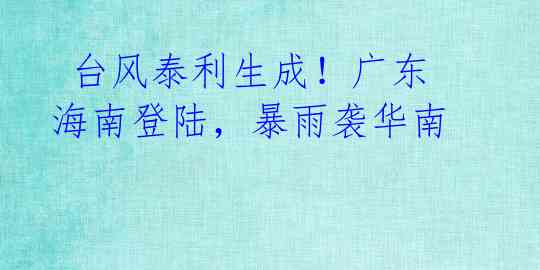 台风泰利生成！广东
海南登陆，暴雨袭华南